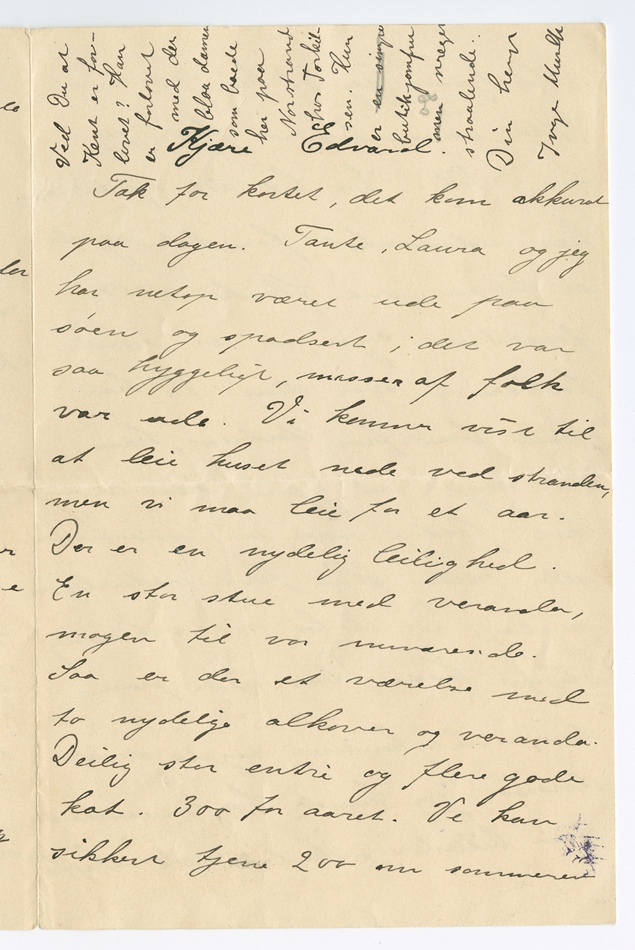 Kjære Edvard.
Tak for kortet, det kom akkurat
paa dagen. Tante, Laura og jeg
har netop været ude paa
søen og spadsert i det var
saa hyggeligt, masser af folk
var ude. Vi kommer vist til
at leie huset nede ved stranden,
men vi maa leie for et aar.
Der er en nydelig leilighed.
En stor stue med veranda,
magen til vor nuværende.
Saa er der et værelse med
to nydelige alkover og veranda.
Deilig stor entré og flere gode
kot. 300 for aaret. Vi kan
sikkert tjene 200 om sommeren
Ved Du at
Knut er for-
lovet? Han
er forlovet
med den
blaa damen
som boede
her paa
Nordstrand
hos Torkil-
sen. Hun
er en simpel
butikjomfru
men meget
straalende.
Din heng
Inga